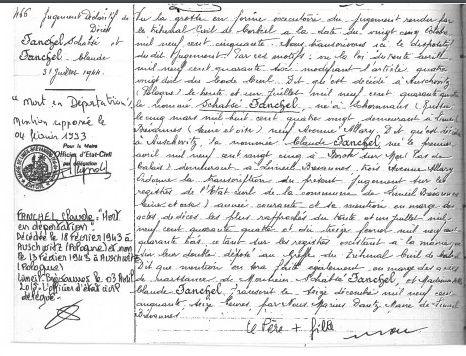 Jugement Déclaratif de
Décès
Fanchel Schatsé et
Fanchel Claude
31 Juillet 1944.
"Mort en Déportation"
Mention apposée le
04 février 1993
Pour le Maire
Officier d'Etat-Civil
FANCHEL Claude : Mort
en déportation
Décédé le 18 février 1943 à
Auschwitz (Pologne) et non
le 13 février 1943 à Auschwitz
(Pologne)
Limeil-Brévannes le 03 Avril
L'officier d'état civil
délégué.
Vu la grosse en forme exécutoire du jugement rendu par
le Tribunal Civil de Corbeil à la date du vingt cinq
mil neuf cent cinquante. Nous transcrivons ici le dispositif
dudit Jugement. Par ces motifs ; vu la loi du trente avril
mil neuf cent quarante six modifiant l'article quatre
vingt dix du Code Civil. Dit qu'est décédé à Auschwitz
Pologne le trente et un Juillet mil neuf cent quarante quatre
le nommé Schatsé Fanchel, né à
le cinq mars mil huit cent quatre vingt demeurant à Limeil
Brévannes (Seine et Oise) neuf Avenue Allary. Dit qu'est décédé
à Auschwitz, la nommée Claude Fanchel née le premier
avril mil neuf cent vingt cinq à sur Mer Pas de
Calais) demeurant à Limeil Brévannes, neuf Avenue Allary
Ordonne la transcription du présent Jugement sur les
registres de l'Etat Civil de la commune de Limeil Brévannes
(Seine et Oise) année courante et sa mention en marge des
actes de décès les plus rapprochés du trente et un juillet mil
neuf cent quarante quatre et du treize février mil neuf cent
quarante trois, tant sur les registres existant à la mairie que
sur leur double déposé au Greffe du Tribunal Civil de
Dit que mention en sera faite également en marge des actes
de naissance de Monsieur Schatsé Fanchel, et
Claude Fanchel. Transcrit le seize décembre mil neuf cent
cinquante seize heures, par Nous Maire de Limeil
Brévannes
le Père + fille